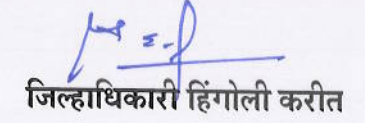 जिल्हाधिकारी हिंगोली करीत